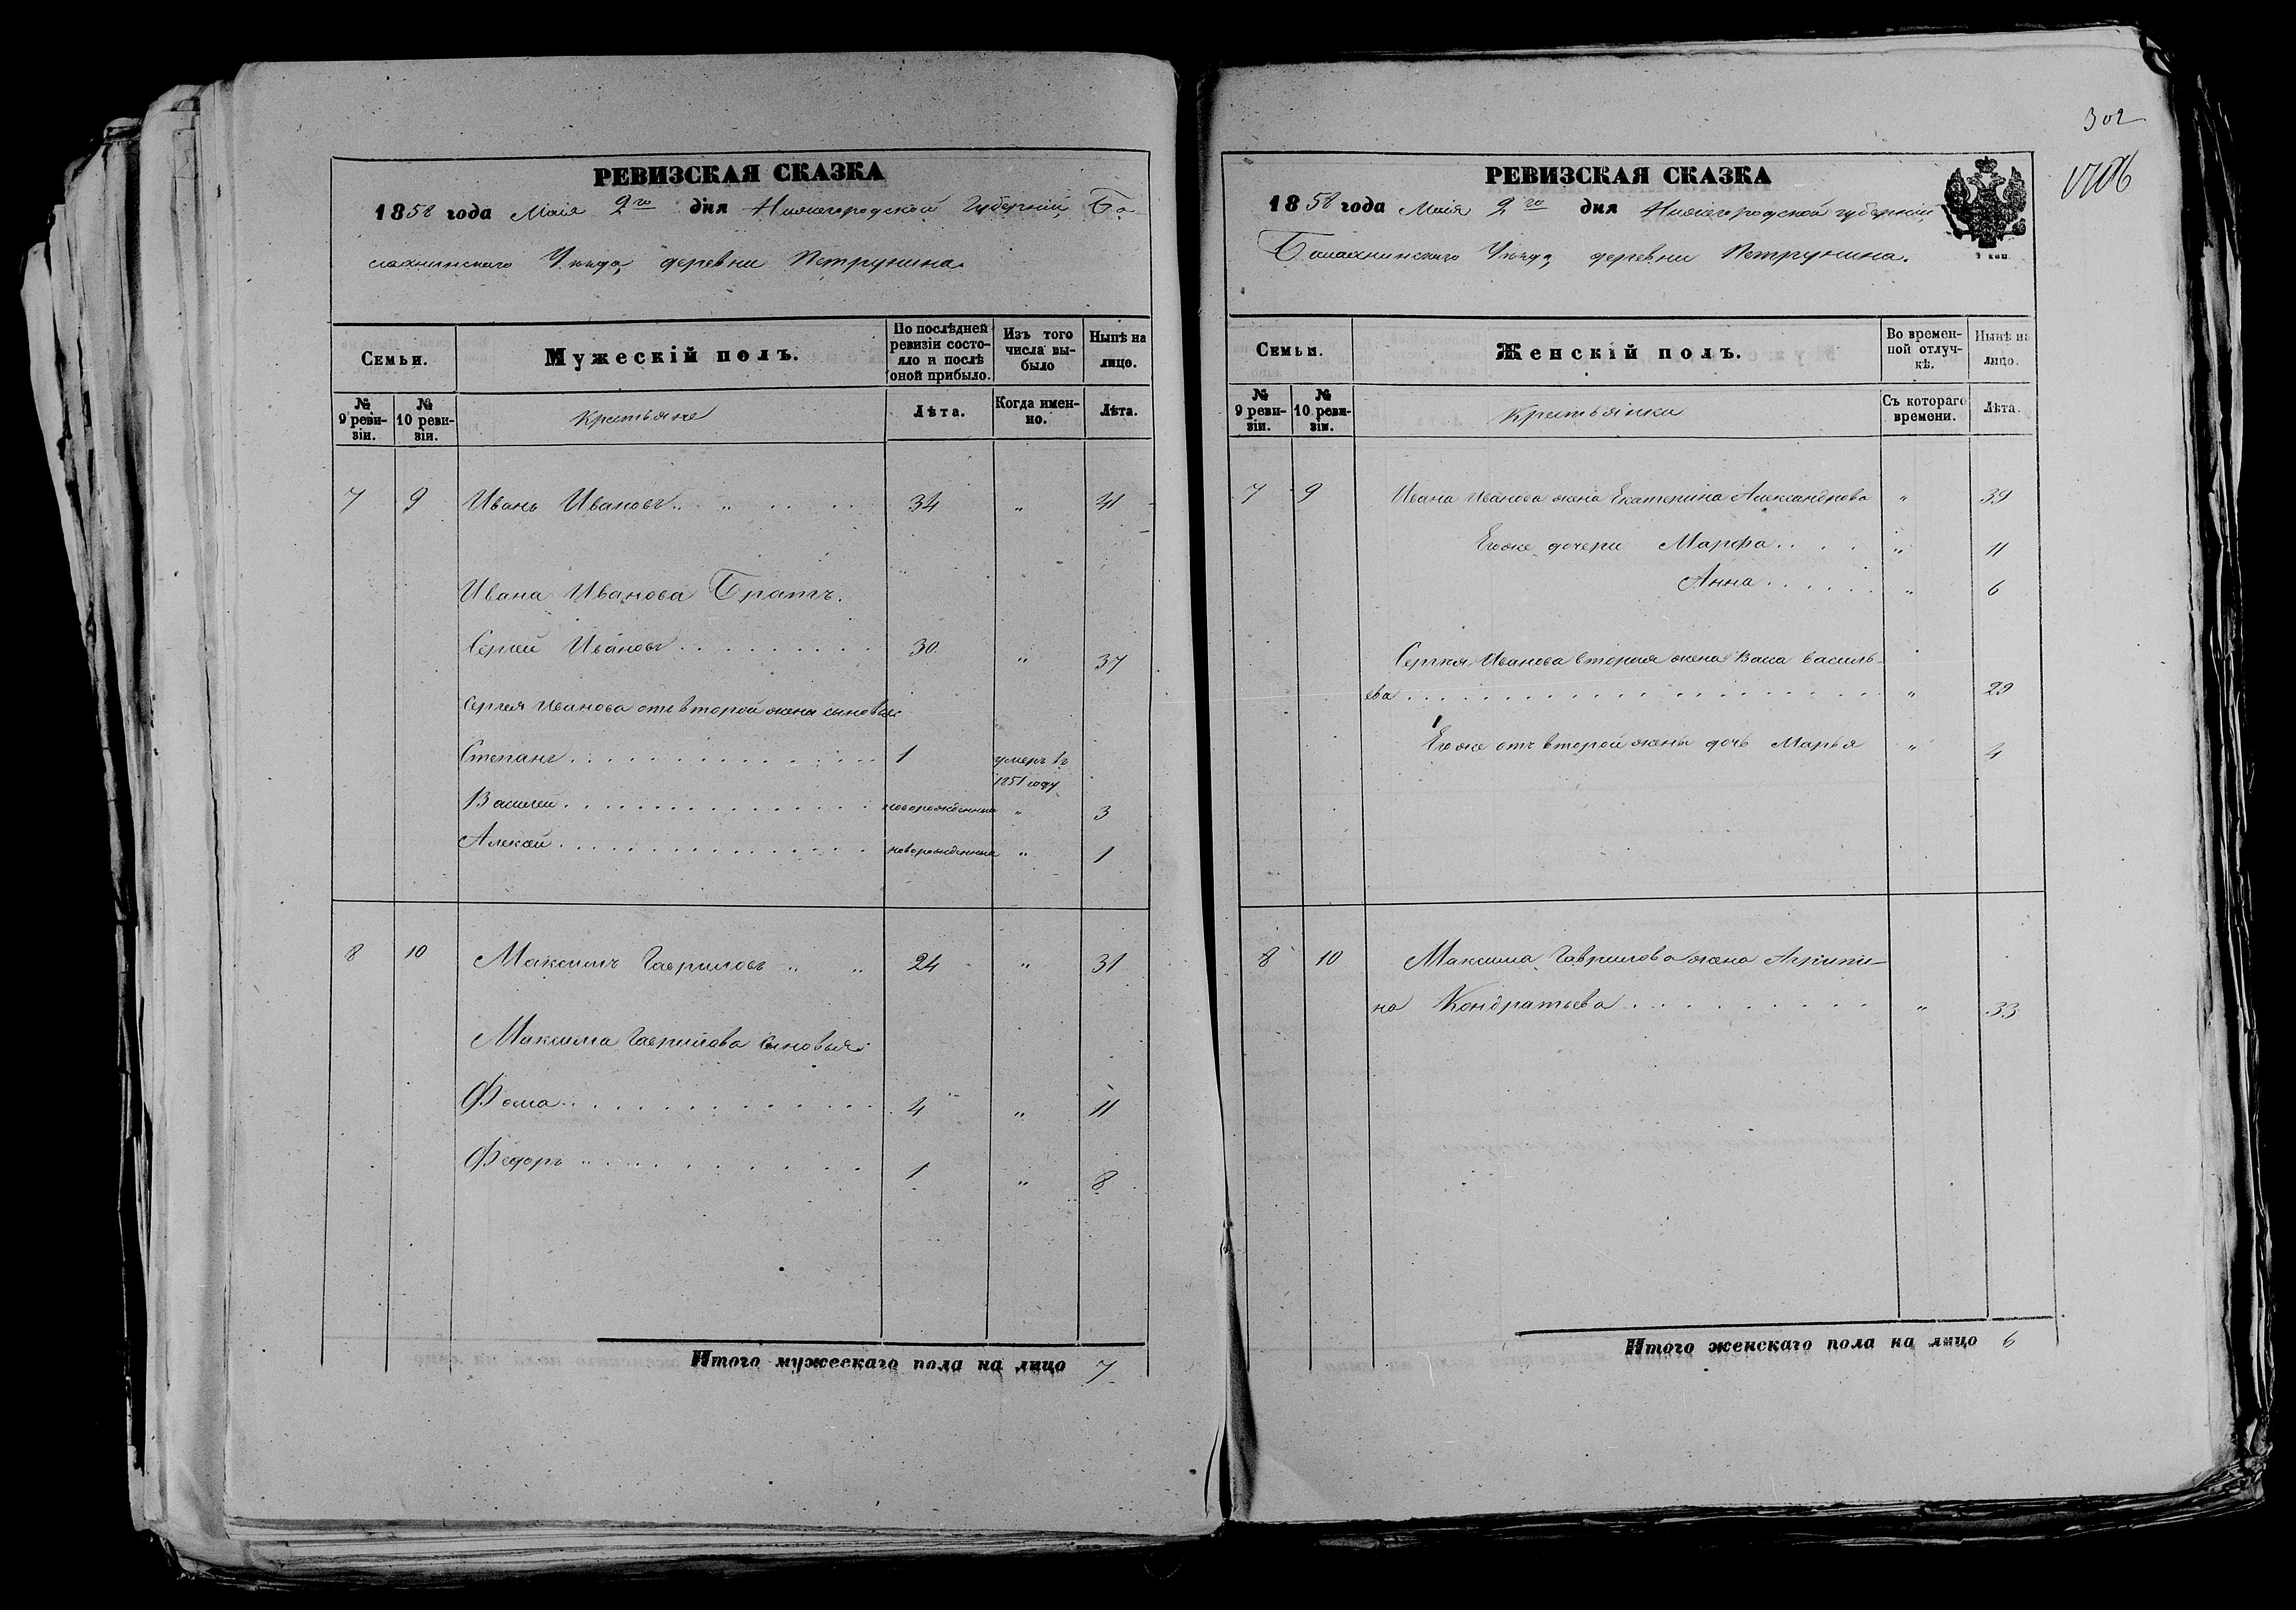 302
1706
РЕВИЗСКАЯ СКАЗКА
1858 года Маія 2го дня Нижегородской Губерніи, Ба-
лахнинскаго Уѣзда, деревни Петрунина.
Семьи.
Мужескій полъ.
По послѣдней ревизіи состояло и послѣ оной прибыло.
Изъ того числа выбыло
Нынѣ на лицо.
№ 9 реви-зіи.
№ 10 реви-зіи.
Крестьяне
Лѣта.
Когда имен-но.
Лѣта.
7 9 Иванъ Ивановъ 34 " 41
Ивана Иванова Братъ.
Сергей Ивановъ 30 " 37
Сергея Иванова отъ второй жены сыновья:
Степанъ 1 умеръ въ
1851 году
Василей новорожденный " 3
Алексей новорожденный " 1
8 10 Максимъ Гавриловъ " " 24 " 31
Максима Гаврилова сыновья:
Фома 4 " 11
Федоръ 1 " 8
Итого мужескаго пола на лицо 7
РЕВИЗСКАЯ СКАЗКА
1858 года Маія 2го дня Нижегородской губерніи
Балахнинскаго Уѣзда, деревни Петрунина.
Семьи.
Женскій полъ.
Во времен-ной отлуч-кѣ.
Нынѣ на лицо.
№ 9 реви-зіи.
№ 10 реви-зіи.
Крестьянки
Съ котораго времени.
Лѣта.
7 9 Ивана Иванова жена Екатерина Александрова " 39
Егоже дочери Марфа " 11
Анна " 6
Сергея Иванова вторая жена Васа василь-
ева " 29
Егоже отъ второй жены дочь Марья " 4
8 10 Максима Гаврилова жена Агрипи-
на Кондратьева " 33
Итого женскаго пола на лицо 6